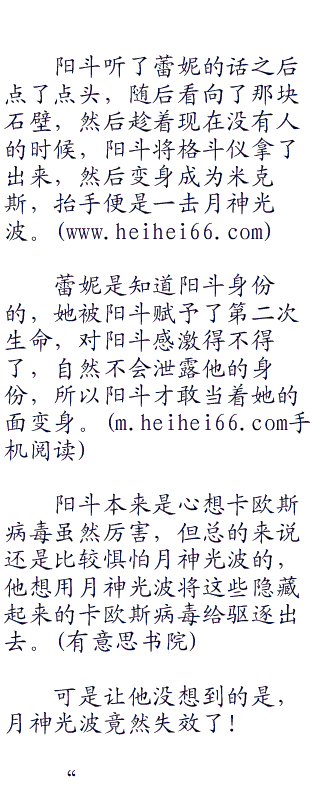 阳斗听了蕾妮的话之后
点了点头，随后看向了那块
石壁，然后趁着现在没有人
的时候，阳斗将格斗仪拿了
出来，然后变身成为米克
斯，抬手便是一击月神光
波。(www.heihei66.com)
蕾妮是知道阳斗身份
的，她被阳斗赋予了第二次
生命，对阳斗感激得不得
了，自然不会泄露他的身
份，所以阳斗才敢当着她的
面变身。(m.heihei66.com手
机阅读)
阳斗本来是心想卡欧斯
病毒虽然厉害，但总的来说
还是比较惧怕月神光波的，
他想用月神光波将这些隐藏
起来的卡欧斯病毒给驱逐出
去。(有意思书院)
可是让他没想到的是，
月神光波竟然失效了！
“